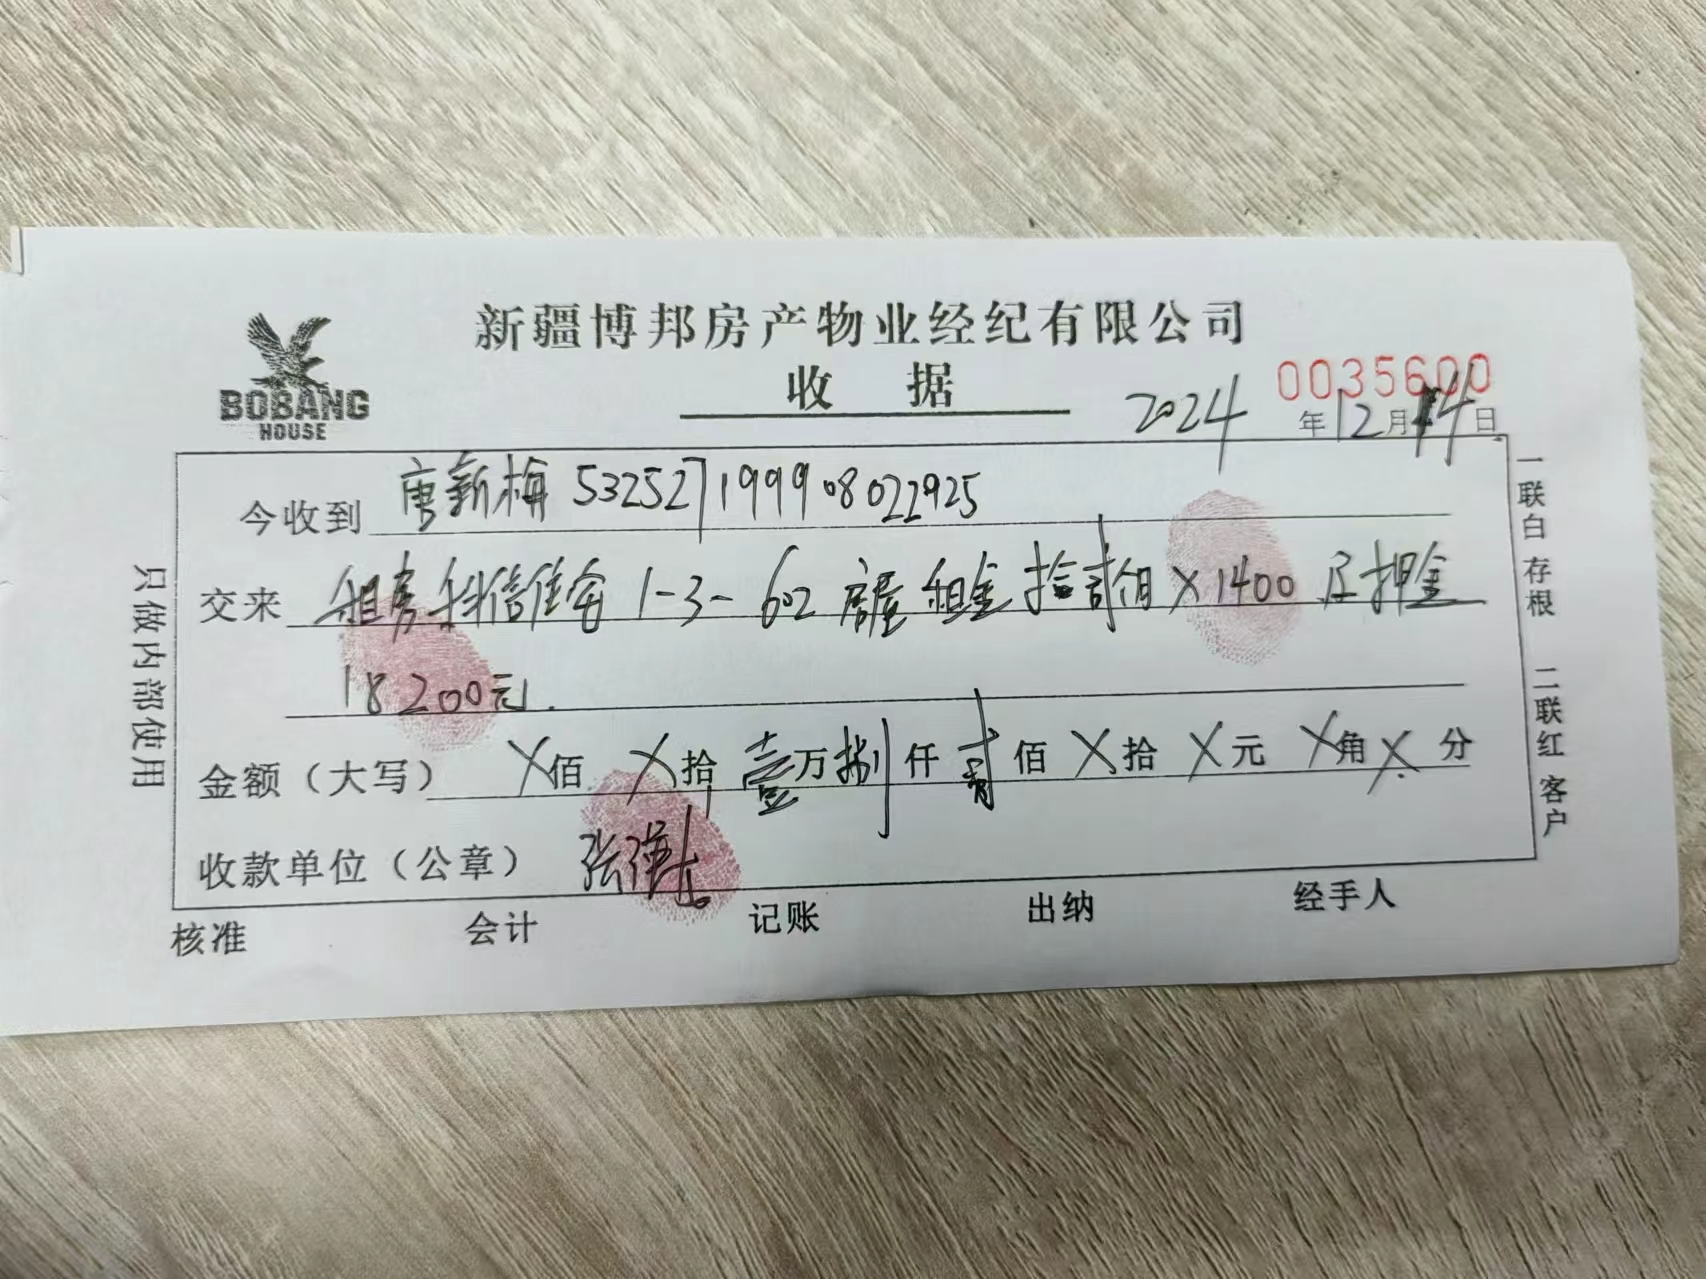 新疆博邦房产物业经纪有限公司
BOBANG
HOUSE
收 据
0035600
2024年12月14日
今收到 唐新梅 532527199908022925
交来 租房科信住宅1-3-602房屋租金拾贰个月×1400及押金
18200元.
金额（大写） X佰 X拾 壹万捌仟贰佰X拾X元X角X分
收款单位（公章） 张
核准 会计 记账 出纳 经手人
只做内部使用
一联白 存根 二联红 客户